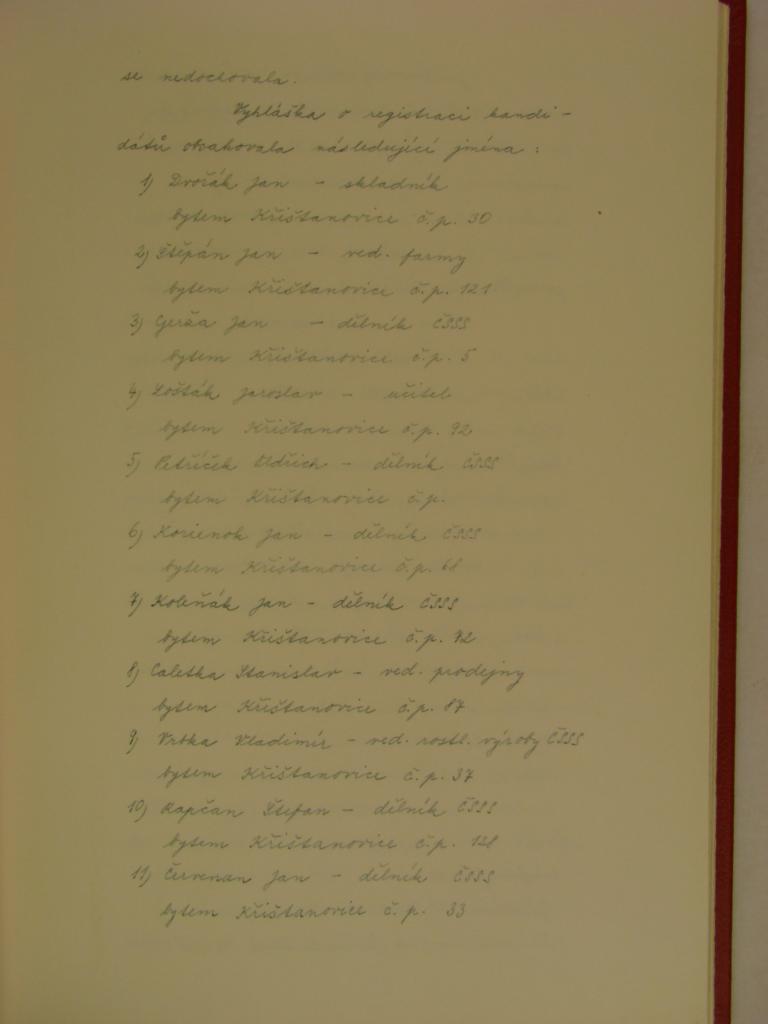 se nedochovala.
Vyhláška o registraci kandi-
dátů obsahovala následující jména:
1) Dvořák Jan - skladník
bytem Křišťanovice č.p. 30
2) Štěpán Jan - ved. farmy
bytem Křišťanovice č.p. 121
3) Gerža Jan - dělník ČSSS
bytem Křišťanovice č.p. 5
4) Lošťák Jaroslav - učitel
bytem Křišťanovice č.p. 92
5) Petříček Oldřich - dělník ČSSS
bytem Křišťanovice č.p.
6) Korienok Jan - dělník ČSSS
bytem Křišťanovice č.p. 68
7) Koleňák Jan - dělník ČSSS
bytem Křišťanovice č.p.
8) Caletka Stanislav - ved. prodejny
bytem Křišťanovice č.p. 87
9) Vrbka Vladimír - ved. rostl. výroby ČSSS
bytem Křišťanovice č.p. 37
10) Kapčan Štefan - dělník ČSSS
bytem Křišťanovice č.p. 128
11) Červenan Jan - dělník ČSSS
bytem Křišťanovice č.p. 33